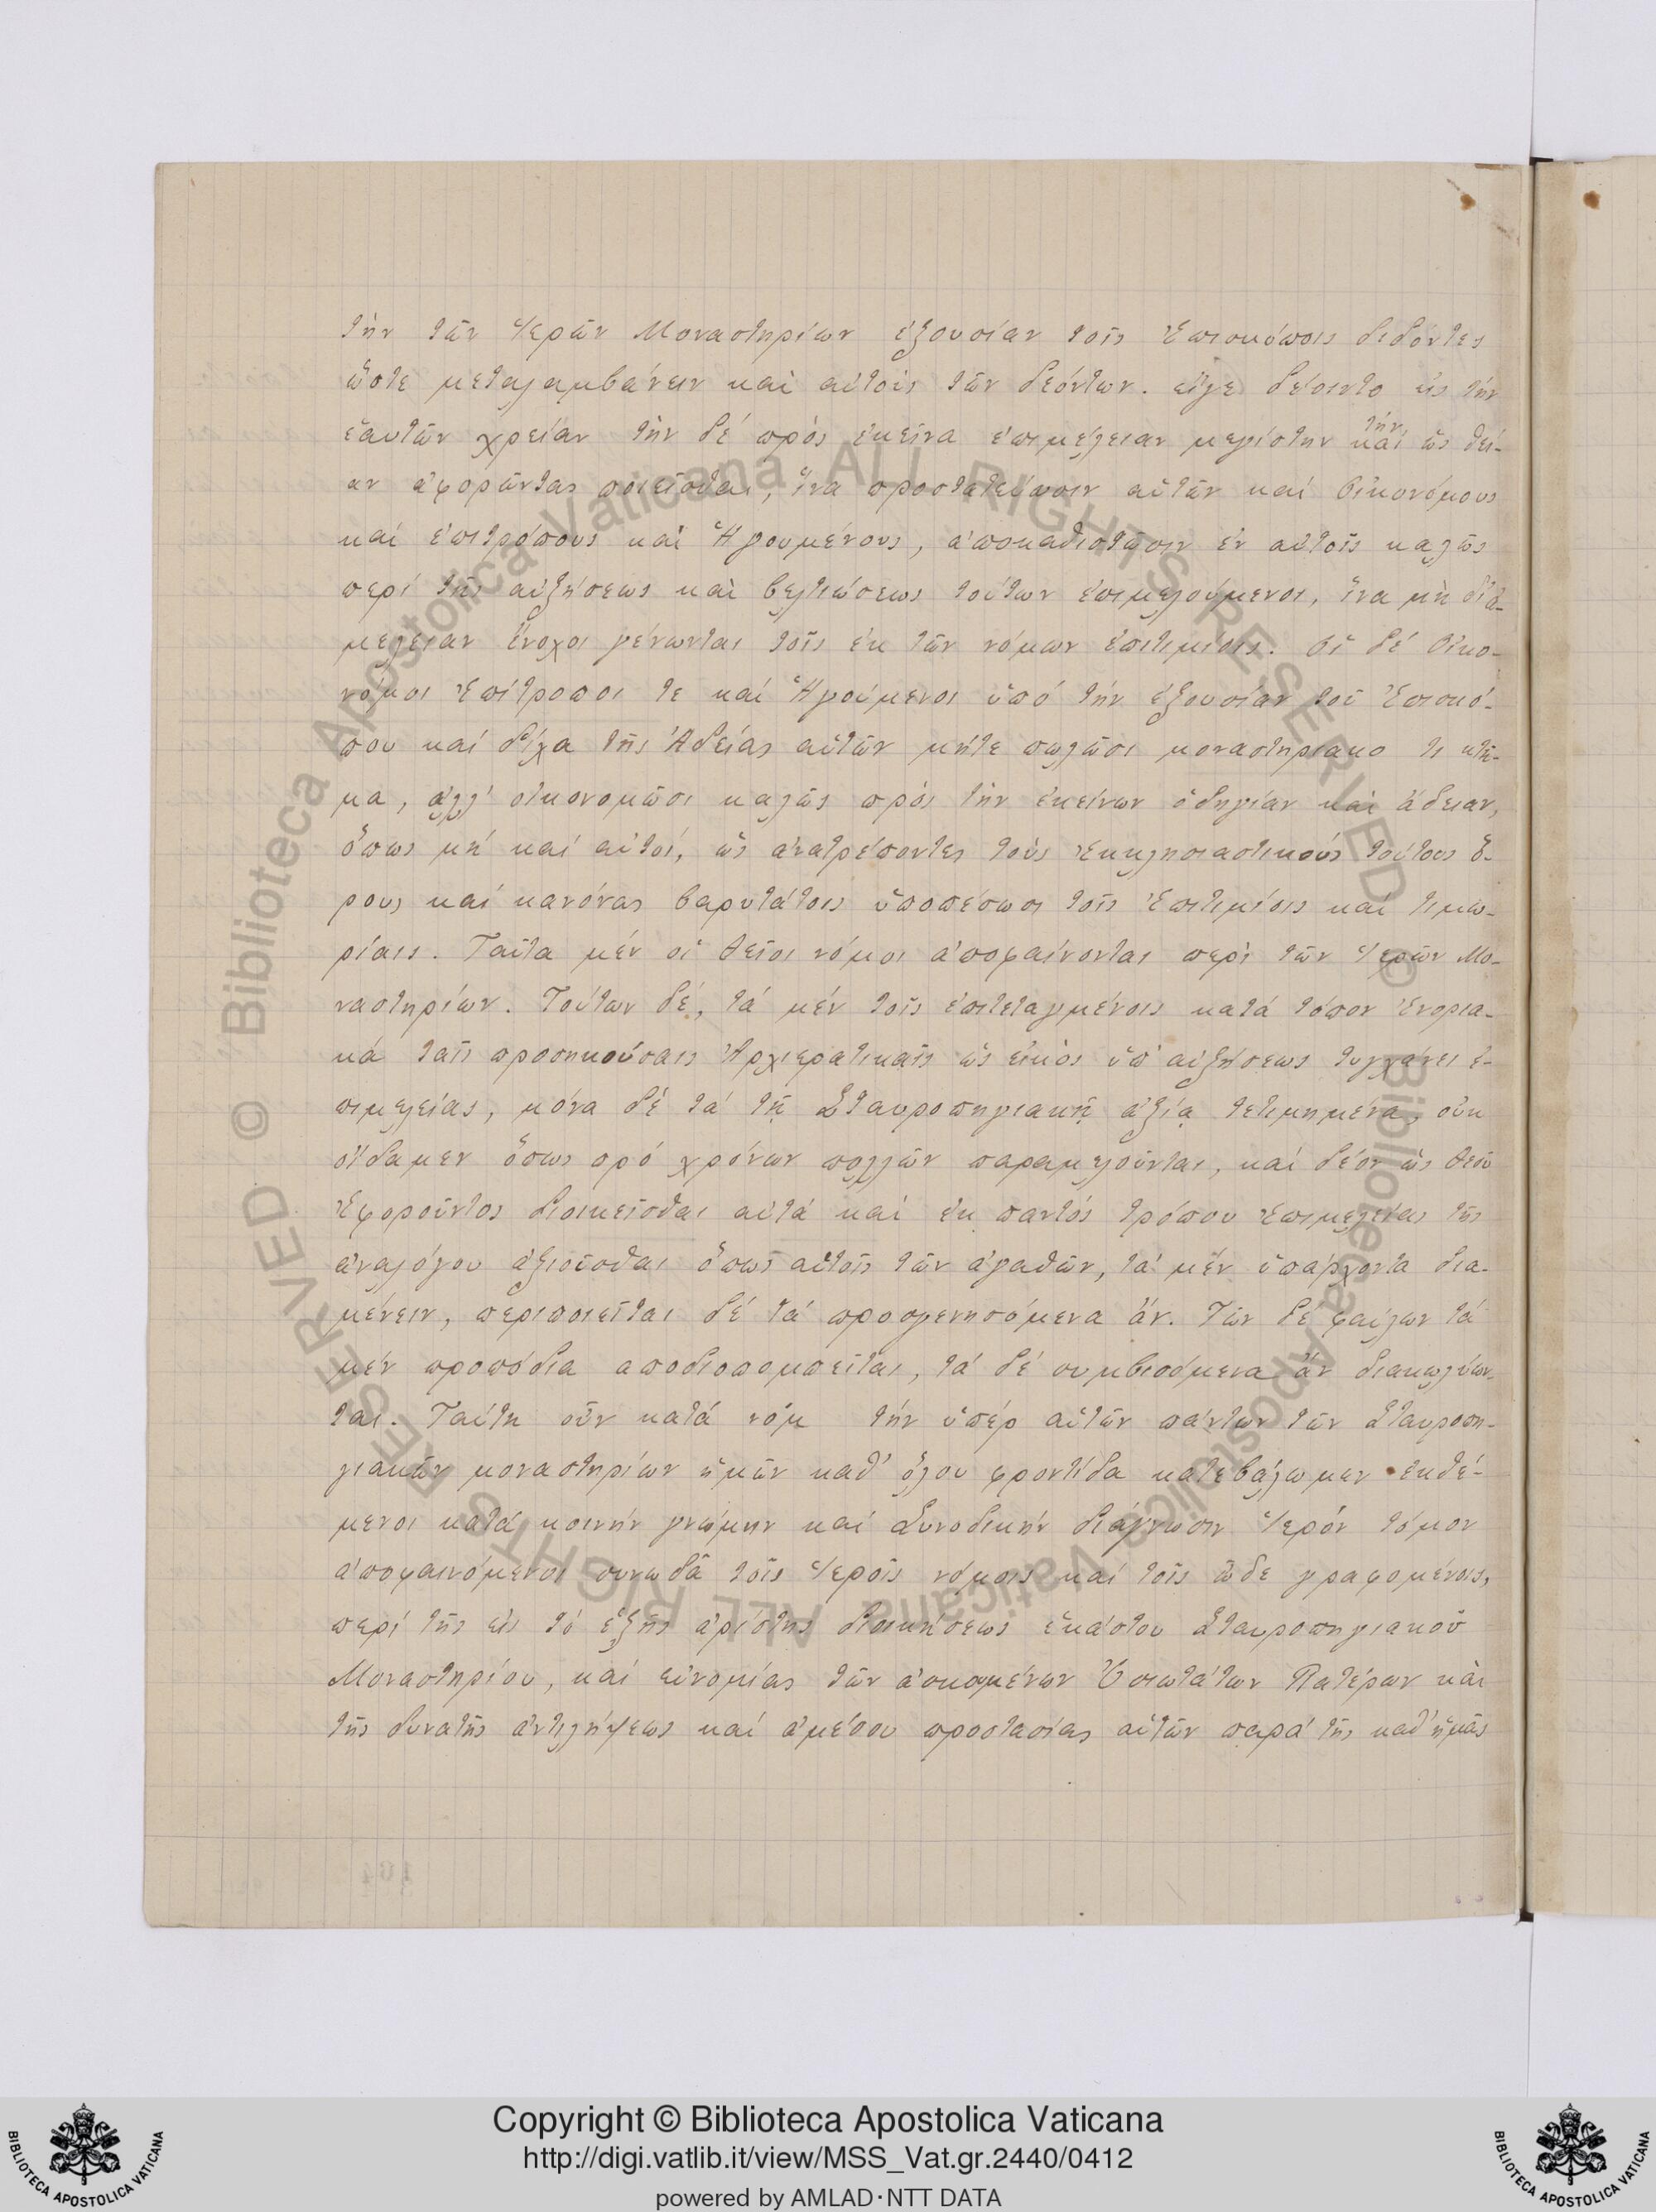 τὴν τῶν Ἱερῶν Μοναστηρίων ἐξουσίαν τοῖς Ἐπισκόποις διδόντες
ὥστε μεταλαμβάνειν καὶ αὐτοὺς τῶν δεόντων. εἴγε δέοιντο εἰς τήν
ἑαυτῶν χρείαν τὴν δέ πρὸς ἐκεῖνα ἐπιμέλειαν μεγίστην τήν καί ὡς θεί-
αν ἀφορῶντας ποιεῖσθαι, ἵνα προστατεύωσιν αὐτῶν καί Οἰκονόμους
καί ἐπιτρόπους καὶ Ἡγουμένους, ἀποκαθιστῶσιν ἐν αὐτοῖς καλῶς
περί τῆς αὐξήσεως καὶ βελτιώσεως τούτων ἐπιμελούμενοι, ἵνα μὴ δι' ἀ-
μέλειαν ἔνοχοι γένωνται τοῖς ἐκ τῶν νόμων ἐπιτιμίοις. Οἱ δέ Οἰκο-
νόμοι Ἐπίτροποι τε καί Ἡγούμενοι ὑπό τήν ἐξουσίαν τοῦ Ἐπισκό-
που καί δίχα τῆς Ἀδείας αὐτῶν μήτε πωλῶσι μοναστηριακο τι κτῆ-
μα, ἀλλ' οἰκονομῶσι καλῶς πρὸς τὴν ἐκείνων ὁδηγίαν καὶ ἄδειαν,
ὅπως μή καί αὐτοί, ὡς ἀνατρέποντες τοὺς Ἐκκλησιαστικούς τούτους ὅ-
ρους καί κανόνας βαρυτάτοις ὑποπέσωσι τοῖς Ἐπιτιμίοις καί τιμω-
ρίαις. Ταῦτα μέν οἱ θεῖοι νόμοι ἀποφαίνονται περὶ τῶν Ἱερῶν Μο-
ναστηρίων. Τούτων δέ, τά μέν τοῖς ἐπιτεταγμένοις κατά τόπον Ἐνορια-
κά ταῖς προσηκούσαις Ἀρχιερατικαῖς ὡς εἰκὸς ὑπ' αὐξήσεως τυγχάνει ἐ-
πιμελείας, μόνα δὲ τά τῇ Σταυροπηγιακῇ ἀξίᾳ τετιμημένα, οὐκ
οἴδαμεν ὅπως πρό χρόνων πολλῶν παραμελοῦνται, καί δέον ὡς θεοῦ
Ἐφοροῦντος διοικεῖσθαι αὐτά καί ἐκ παντός τρόπου Ἐπιμελείας τῆς
ἀναλόγου ἀξιοῦσθαι ὅπως αὐτοῖς τῶν ἀγαθῶν, τά μέν ὑπάρχοντα δια-
μένειν, περιποιεῖται δέ τά προσγενησόμενα ἄν. Τῶν δέ φαύλων τά
μέν προπόδια αποδιοπομπεῖται, τά δέ συμβισόμενα ἄν διακωλύων-
ται. Ταύτη οὖν κατά νόμ τήν ὑπέρ αὐτῶν πάντων τῶν Σταυροπη-
γιακῶν μοναστηρίων ἡμῶν καθ' ὅλου φροντίδα κατεβάλωμεν ἐκθέ-
μενοι κατά κοινήν γνώμην καί Συνοδικήν διάγνωσιν Ἱερόν τόμον
ἀποφαινόμενοι συνωδᾶ τοῖς Ἱεροῖς νόμοις καί τοῖς ὧδε γραφομένοις,
περί τῆς εἰς τό ἑξῆς ἀρίστης διοικήσεως ἑκάστου Σταυροπηγιακοῦ
Μοναστηρίου, καί εὐνομίας τῶν ἀσκουμένων Ὁσιωτάτων Πατέρων καὶ
τῆς δυνατῆς ἀντιλήψεως καί ἀμέσου προστασίας αὐτῶν παρά τῆς καθ' ἡμᾶς
© Biblioteca Apostolica Vaticana ALL RIGHTS RESERVED
© Biblioteca Apostolica Vaticana ALL RIGHTS RESERVED
Copyright © Biblioteca Apostolica Vaticana
http://digi.vatlib.it/view/MSS_Vat.gr.2440/0412
powered by AMLAD·NTT DATA
BIBLIOTECA APOSTOLICA VATICANA
BIBLIOTECA APOSTOLICA VATICANA